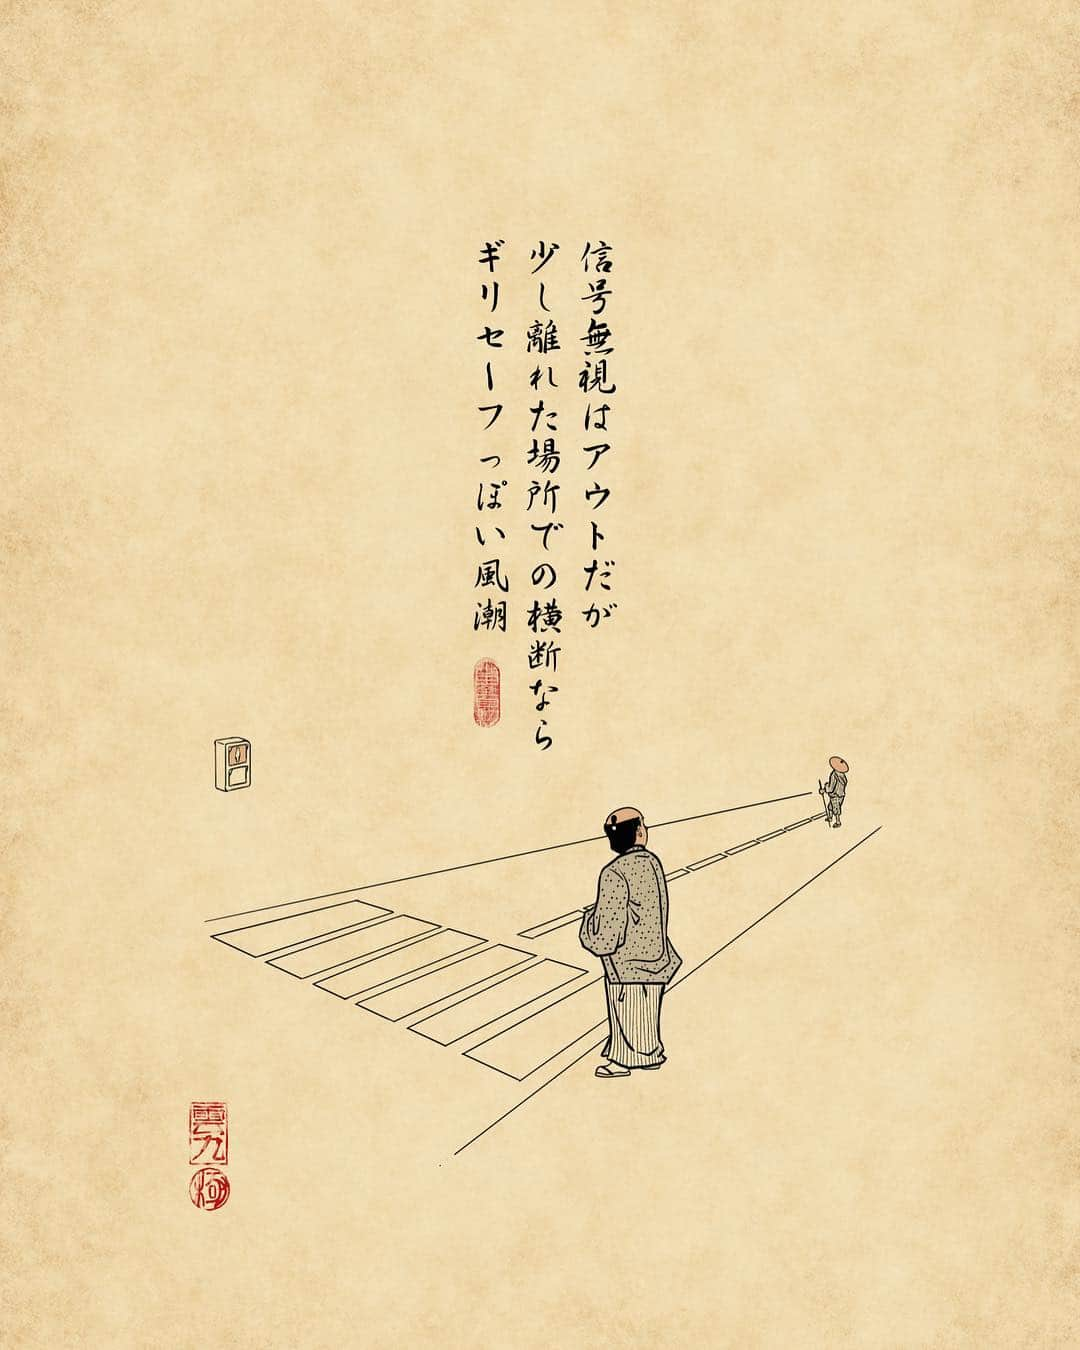 信号無視はアウトだが
少し離れた場所での横断なら
ギリセーフっぽい風潮